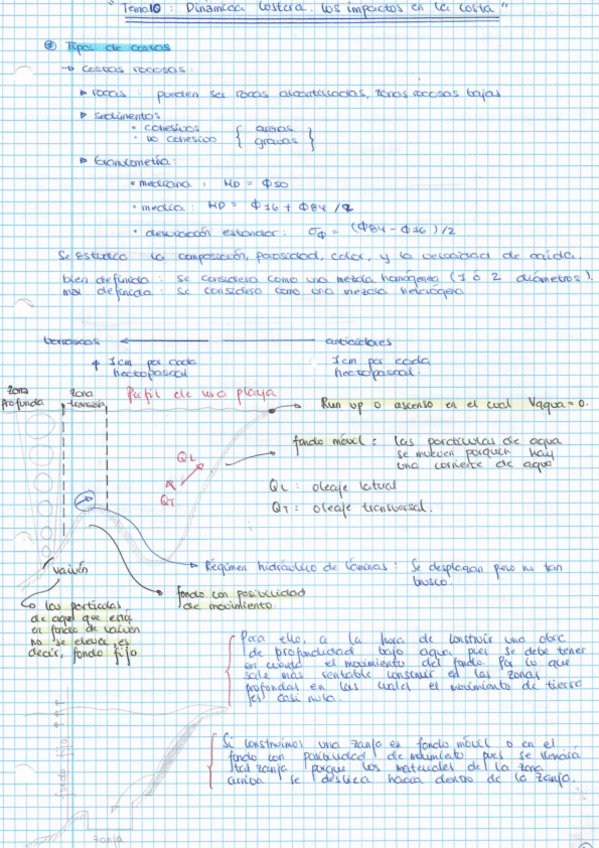 "Tema 10 : Dinámica Costera. Los impactos en la costa"
Tipos de costas
→ Costas rocosas:
▸ rocas : pueden ser rocas alcantiladas, zonas rocosas bajas
▸ sedimentos
• cohesivos { arenas }
• no cohesivo { gravas }
▸ Granulometría:
• mediana : MD = Φ50
• media : MD = Φ16 + Φ84 /2
• desviación estandar: σΦ = (Φ84 - Φ16)/2
Se estudia la composición, porosidad, color, y la velocidad de caída.
bien definida : se considera como una mezcla homogénea (1 o 2 diámetros).
mal definida : se considera como una mezcla heterógena
borrascas ← anticiclones
↑ 1cm por cada hectopascal
1cm por cada hectopascal
zona profunda
zona transición
Perfil de una playa
Run up o ascenso en el cual Vagua = 0.
fondo móvil : las partículas de agua
se mueven porque hay
una corriente de agua
QL
QT
QL : oleaje lateral
QT : oleaje transversal.
vaivén
Régimen hidráulico de láminas : Se desplazan pero no tan
brusco.
fondo con posibilidad
de movimiento.
las partículas
de agua que están
en fondo de vaivén
no se eleva, es
decir, fondo fijo
Para ello, a la hora de construir una obra
de profundidad bajo agua pues se debe tener
en cuenta el movimiento del fondo. Por lo que
sale más rentable construir en las zonas
profundas en las cuales el movimiento de tierra
es casi nulo.
Si construimos una zanja en fondo móvil o en el
fondo con posibilidad de movimiento pues se llenaría
zanja porque los materiales de la zona
arriba se desliza hacia dentro de la zanja.
fondo fijo
zanja